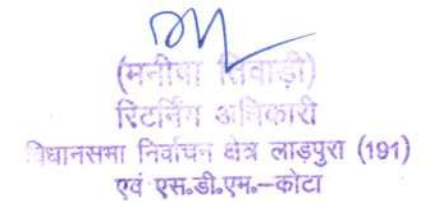 (मनीषा तिवाड़ी)
रिटर्निंग अधिकारी
विधानसभा निर्वाचन क्षेत्र लाड़पुरा (191)
एवं एस.डी.एम.–कोटा